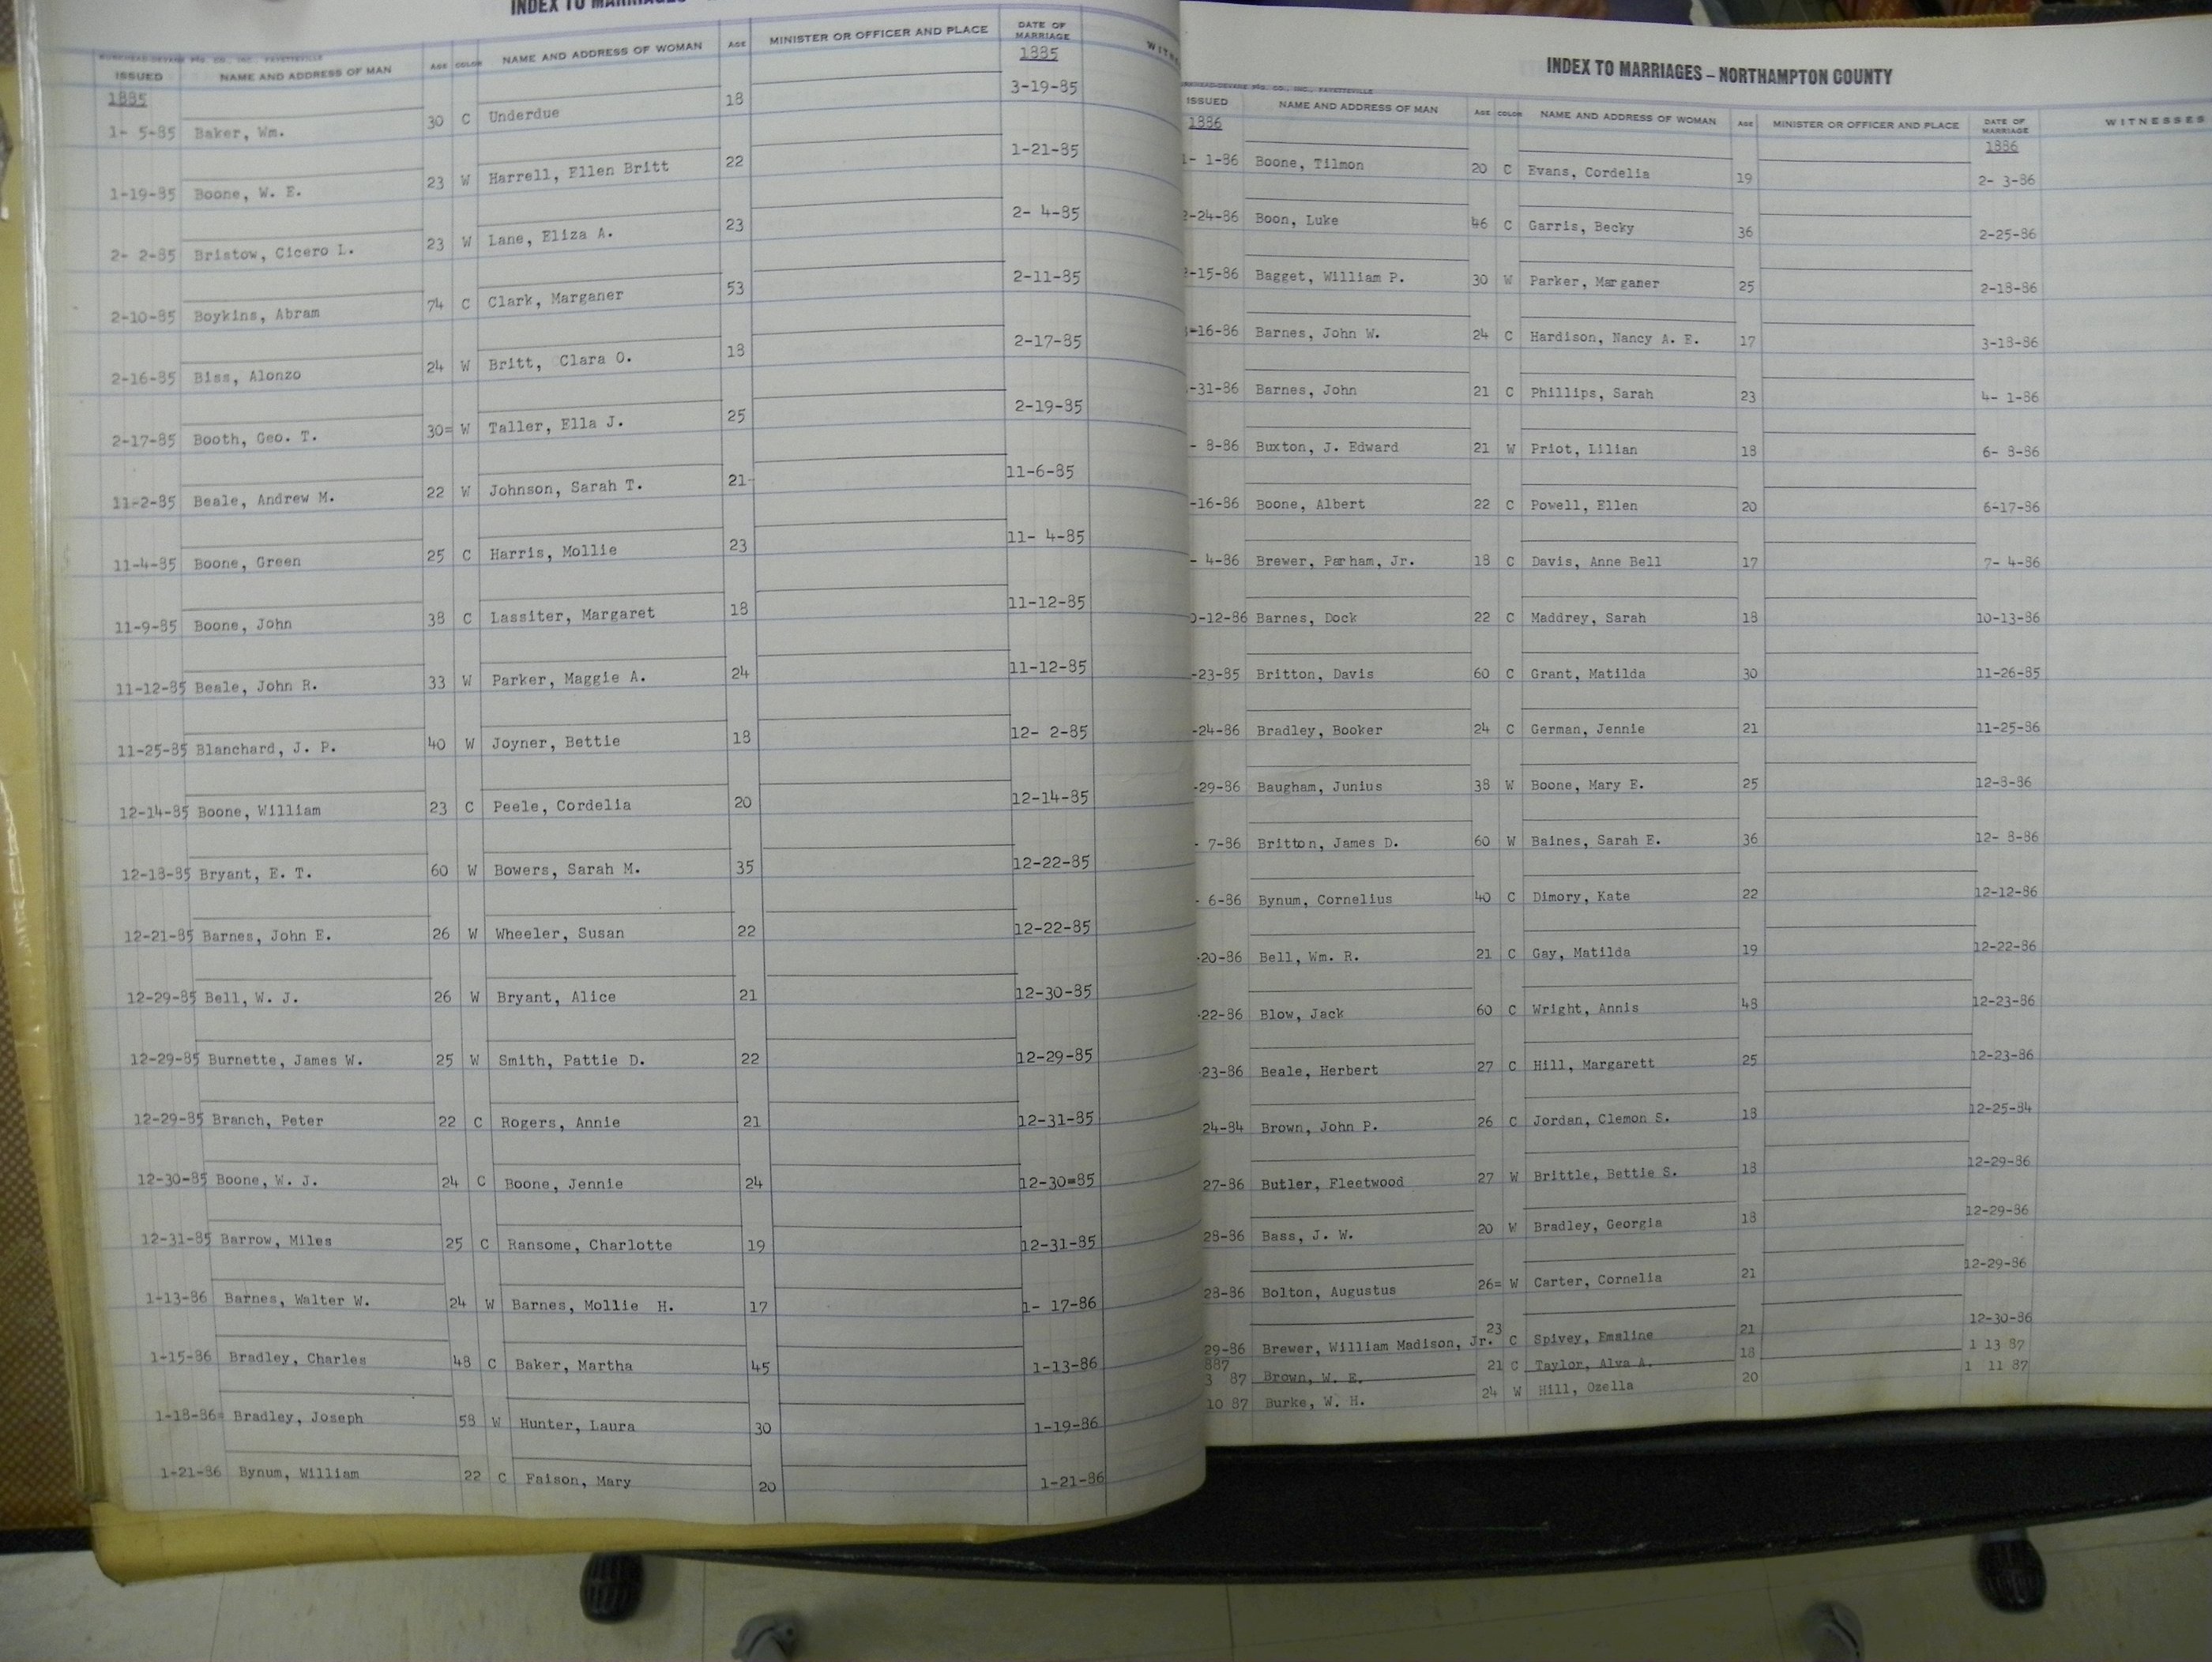 INDEX TO MARRIAGES -
ISSUED NAME AND ADDRESS OF MAN AGE COLOR NAME AND ADDRESS OF WOMAN AGE MINISTER OR OFFICER AND PLACE DATE OF MARRIAGE
1885 1885
1- 5-85 Baker, Wm. 30 C Underdue 18 3-19-85
1-19-85 Boone, W. E. 23 W Harrell, Ellen Britt 22 1-21-85
2- 2-85 Bristow, Cicero L. 23 W Lane, Eliza A. 23 2- 4-85
2-10-85 Boykins, Abram 74 C Clark, Marganer 53 2-11-85
2-16-85 Biss, Alonzo 24 W Britt, Clara O. 18 2-17-85
2-17-85 Booth, Geo. T. 30= W Taller, Ella J. 25 2-19-85
11-2-85 Beale, Andrew M. 22 W Johnson, Sarah T. 21 11-6-85
11-4-85 Boone, Green 25 C Harris, Mollie 23 11- 4-85
11-9-85 Boone, John 38 C Lassiter, Margaret 18 11-12-85
11-12-85 Beale, John R. 33 W Parker, Maggie A. 24 11-12-85
11-25-85 Blanchard, J. P. 40 W Joyner, Bettie 18 12- 2-85
12-14-85 Boone, William 23 C Peele, Cordelia 20 12-14-85
12-18-85 Bryant, E. T. 60 W Bowers, Sarah M. 35 12-22-85
12-21-85 Barnes, John E. 26 W Wheeler, Susan 22 12-22-85
12-29-85 Bell, W. J. 26 W Bryant, Alice 21 12-30-85
12-29-85 Burnette, James W. 25 W Smith, Pattie D. 22 12-29-85
12-29-85 Branch, Peter 22 C Rogers, Annie 21 12-31-85
12-30-85 Boone, W. J. 24 C Boone, Jennie 24 12-30=85
12-31-85 Barrow, Miles 25 C Ransome, Charlotte 19 12-31-85
1-13-86 Barnes, Walter W. 24 W Barnes, Mollie H. 17 1- 17-86
1-15-86 Bradley, Charles 48 C Baker, Martha 45 1-13-86
1-18-86= Bradley, Joseph 58 W Hunter, Laura 30 1-19-86
1-21-86 Bynum, William 22 C Faison, Mary 20 1-21-86
INDEX TO MARRIAGES – NORTHAMPTON COUNTY
ISSUED NAME AND ADDRESS OF MAN AGE COLOR NAME AND ADDRESS OF WOMAN AGE MINISTER OR OFFICER AND PLACE DATE OF MARRIAGE WITNESSES
1886 1886
1- 1-86 Boone, Tilmon 20 C Evans, Cordelia 19 2- 3-86
2-24-86 Boon, Luke 46 C Garris, Becky 36 2-25-86
-15-86 Bagget, William P. 30 W Parker, Marganer 25 2-18-86
-16-86 Barnes, John W. 24 C Hardison, Nancy A. E. 17 3-18-86
-31-86 Barnes, John 21 C Phillips, Sarah 23 4- 1-86
- 8-86 Buxton, J. Edward 21 W Priot, Lilian 18 6- 8-86
-16-86 Boone, Albert 22 C Powell, Ellen 20 6-17-86
- 4-86 Brewer, Parham, Jr. 18 C Davis, Anne Bell 17 7- 4-86
0-12-86 Barnes, Dock 22 C Maddrey, Sarah 18 10-13-86
-23-85 Britton, Davis 60 C Grant, Matilda 30 11-26-85
-24-86 Bradley, Booker 24 C German, Jennie 21 11-25-86
-29-86 Baugham, Junius 38 W Boone, Mary E. 25 12-8-86
- 7-86 Britton, James D. 60 W Baines, Sarah E. 36 12- 8-86
- 6-86 Bynum, Cornelius 40 C Dimory, Kate 22 12-12-86
-20-86 Bell, Wm. R. 21 C Gay, Matilda 19 12-22-86
-22-86 Blow, Jack 60 C Wright, Annis 48 12-23-86
-23-86 Beale, Herbert 27 C Hill, Margarett 25 12-23-86
24-84 Brown, John P. 26 C Jordan, Clemon S. 18 12-25-84
27-86 Butler, Fleetwood 27 W Brittle, Bettie S. 18 12-29-86
28-86 Bass, J. W. 20 W Bradley, Georgia 18 12-29-86
28-86 Bolton, Augustus 26= W Carter, Cornelia 21 12-29-86
29-86 Brewer, William Madison, Jr. 23 C Spivey, Emaline 21 12-30-86
887
3 87 Brown, W. E. 21 C Taylor, Alva A. 18 1 13 87
10 87 Burke, W. H. 24 W Hill, Ozella 20 1 11 87